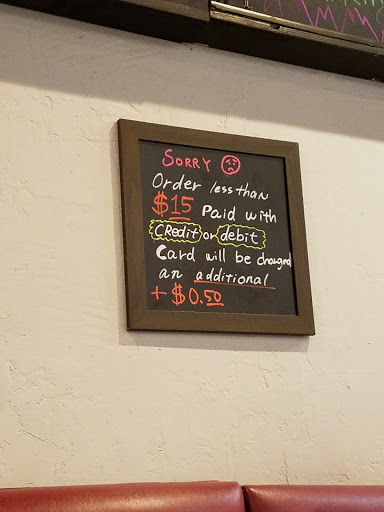 SORRY
Order less than
$15 Paid with
CRedit or debit
Card will be charged
an additional
+ $0.50